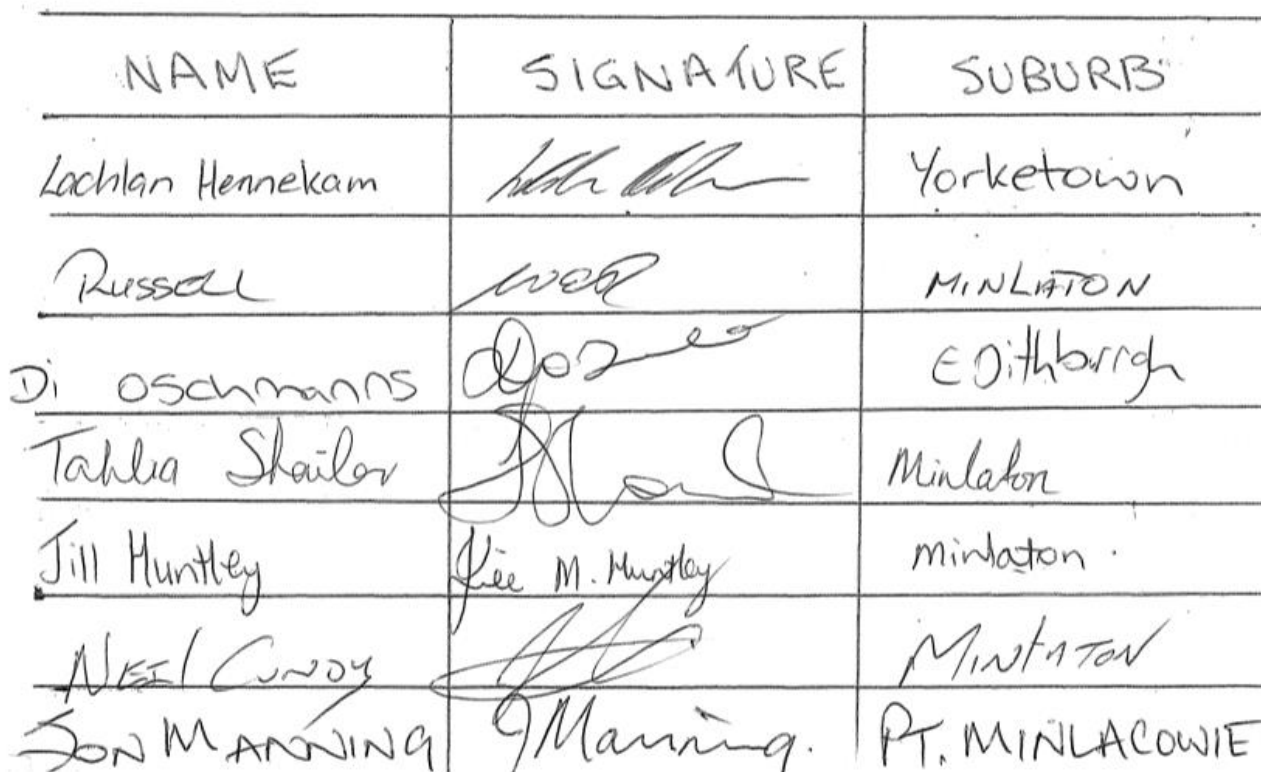 NAME SIGNATURE SUBURB
Lachlan Hennekam Yorketown
Russell MINLATON
Di Oschmanns EDithburgh
Tahlia Shailer Minlaton
Jill Huntley M. Huntley minlaton.
NEil CUNDY MINLATON
JON MANNING JManning. PT. MINLACOWIE